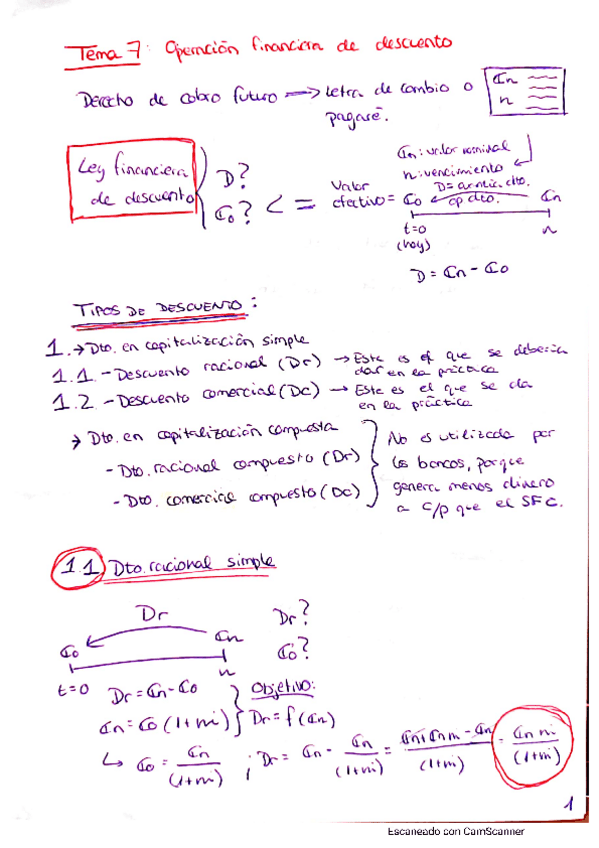 Tema 7: Operación financiera de descuento
Derecho de cobro futuro → Letra de cambio o pagaré.
Cn
n
Cn: valor nominal
n: vencimiento
Ley financiera de descuento
D?
Co?
< =
Valor efectivo = Co
D =
dto.
Cn
t=0
(hoy)
n
D = Cn - Co
TIPOS DE DESCUENTO:
1. → Dto. en capitalización simple
1.1. - Descuento racional (Dr) → Este es el que se debería dar en la práctica
1.2 - Descuento comercial (Dc) → Este es el que se da en la práctica
→ Dto. en capitalización compuesta
- Dto. racional compuesto (Dr)
- Dto. comercial compuesto (Dc)
No es utilizado por
los bancos, porque
genera menos dinero
a c/p que el SFC.
1.1 Dto. racional simple
Dr
Co
Cn
t=0
n
Dr?
Co?
Dr = Cn - Co
Cn = Co (1+ni)
Objetivo:
Dr = f(Cn)
↳ Co = Cn/(1+ni) ; Dr = Cn - Cn/(1+ni) = Cn+Cnni - Cn/(1+ni) = Cn ni/(1+ni)
1
Escaneado con CamScanner